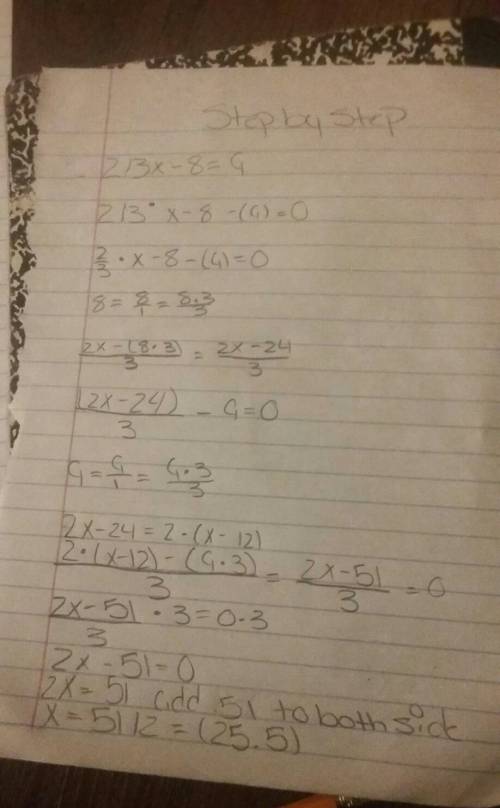 Step by Step
2/3x - 8 = 9
2/3 • x - 8 - (9) = 0
2/3 • x - 8 - (9) = 0
8 = 8/1 = 8•3/3
2x - (8•3)/3 = 2x - 24/3
(2x - 24)/3 - 9 = 0
9 = 9/1 = 9•3/3
2x - 24 = 2•(x - 12)
2•(x-12) - (9•3)/3 = 2x - 51/3 = 0
2x - 51/3 • 3 = 0•3
2x - 51 = 0
2x = 51 add 51 to both sick
x = 51/2 = (25.5)